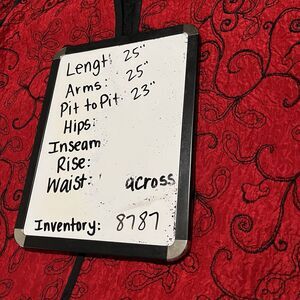 Lengt: 25"
Arms: 25"
Pit to Pit: 23"
Hips:
Inseam
Rise:
Waist: across
Inventory: 8787